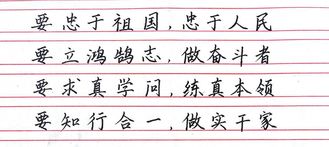 要忠于祖国,忠于人民
要立鸿鹄志,做奋斗者
要求真学问,练真本领
要知行合一,做实干家